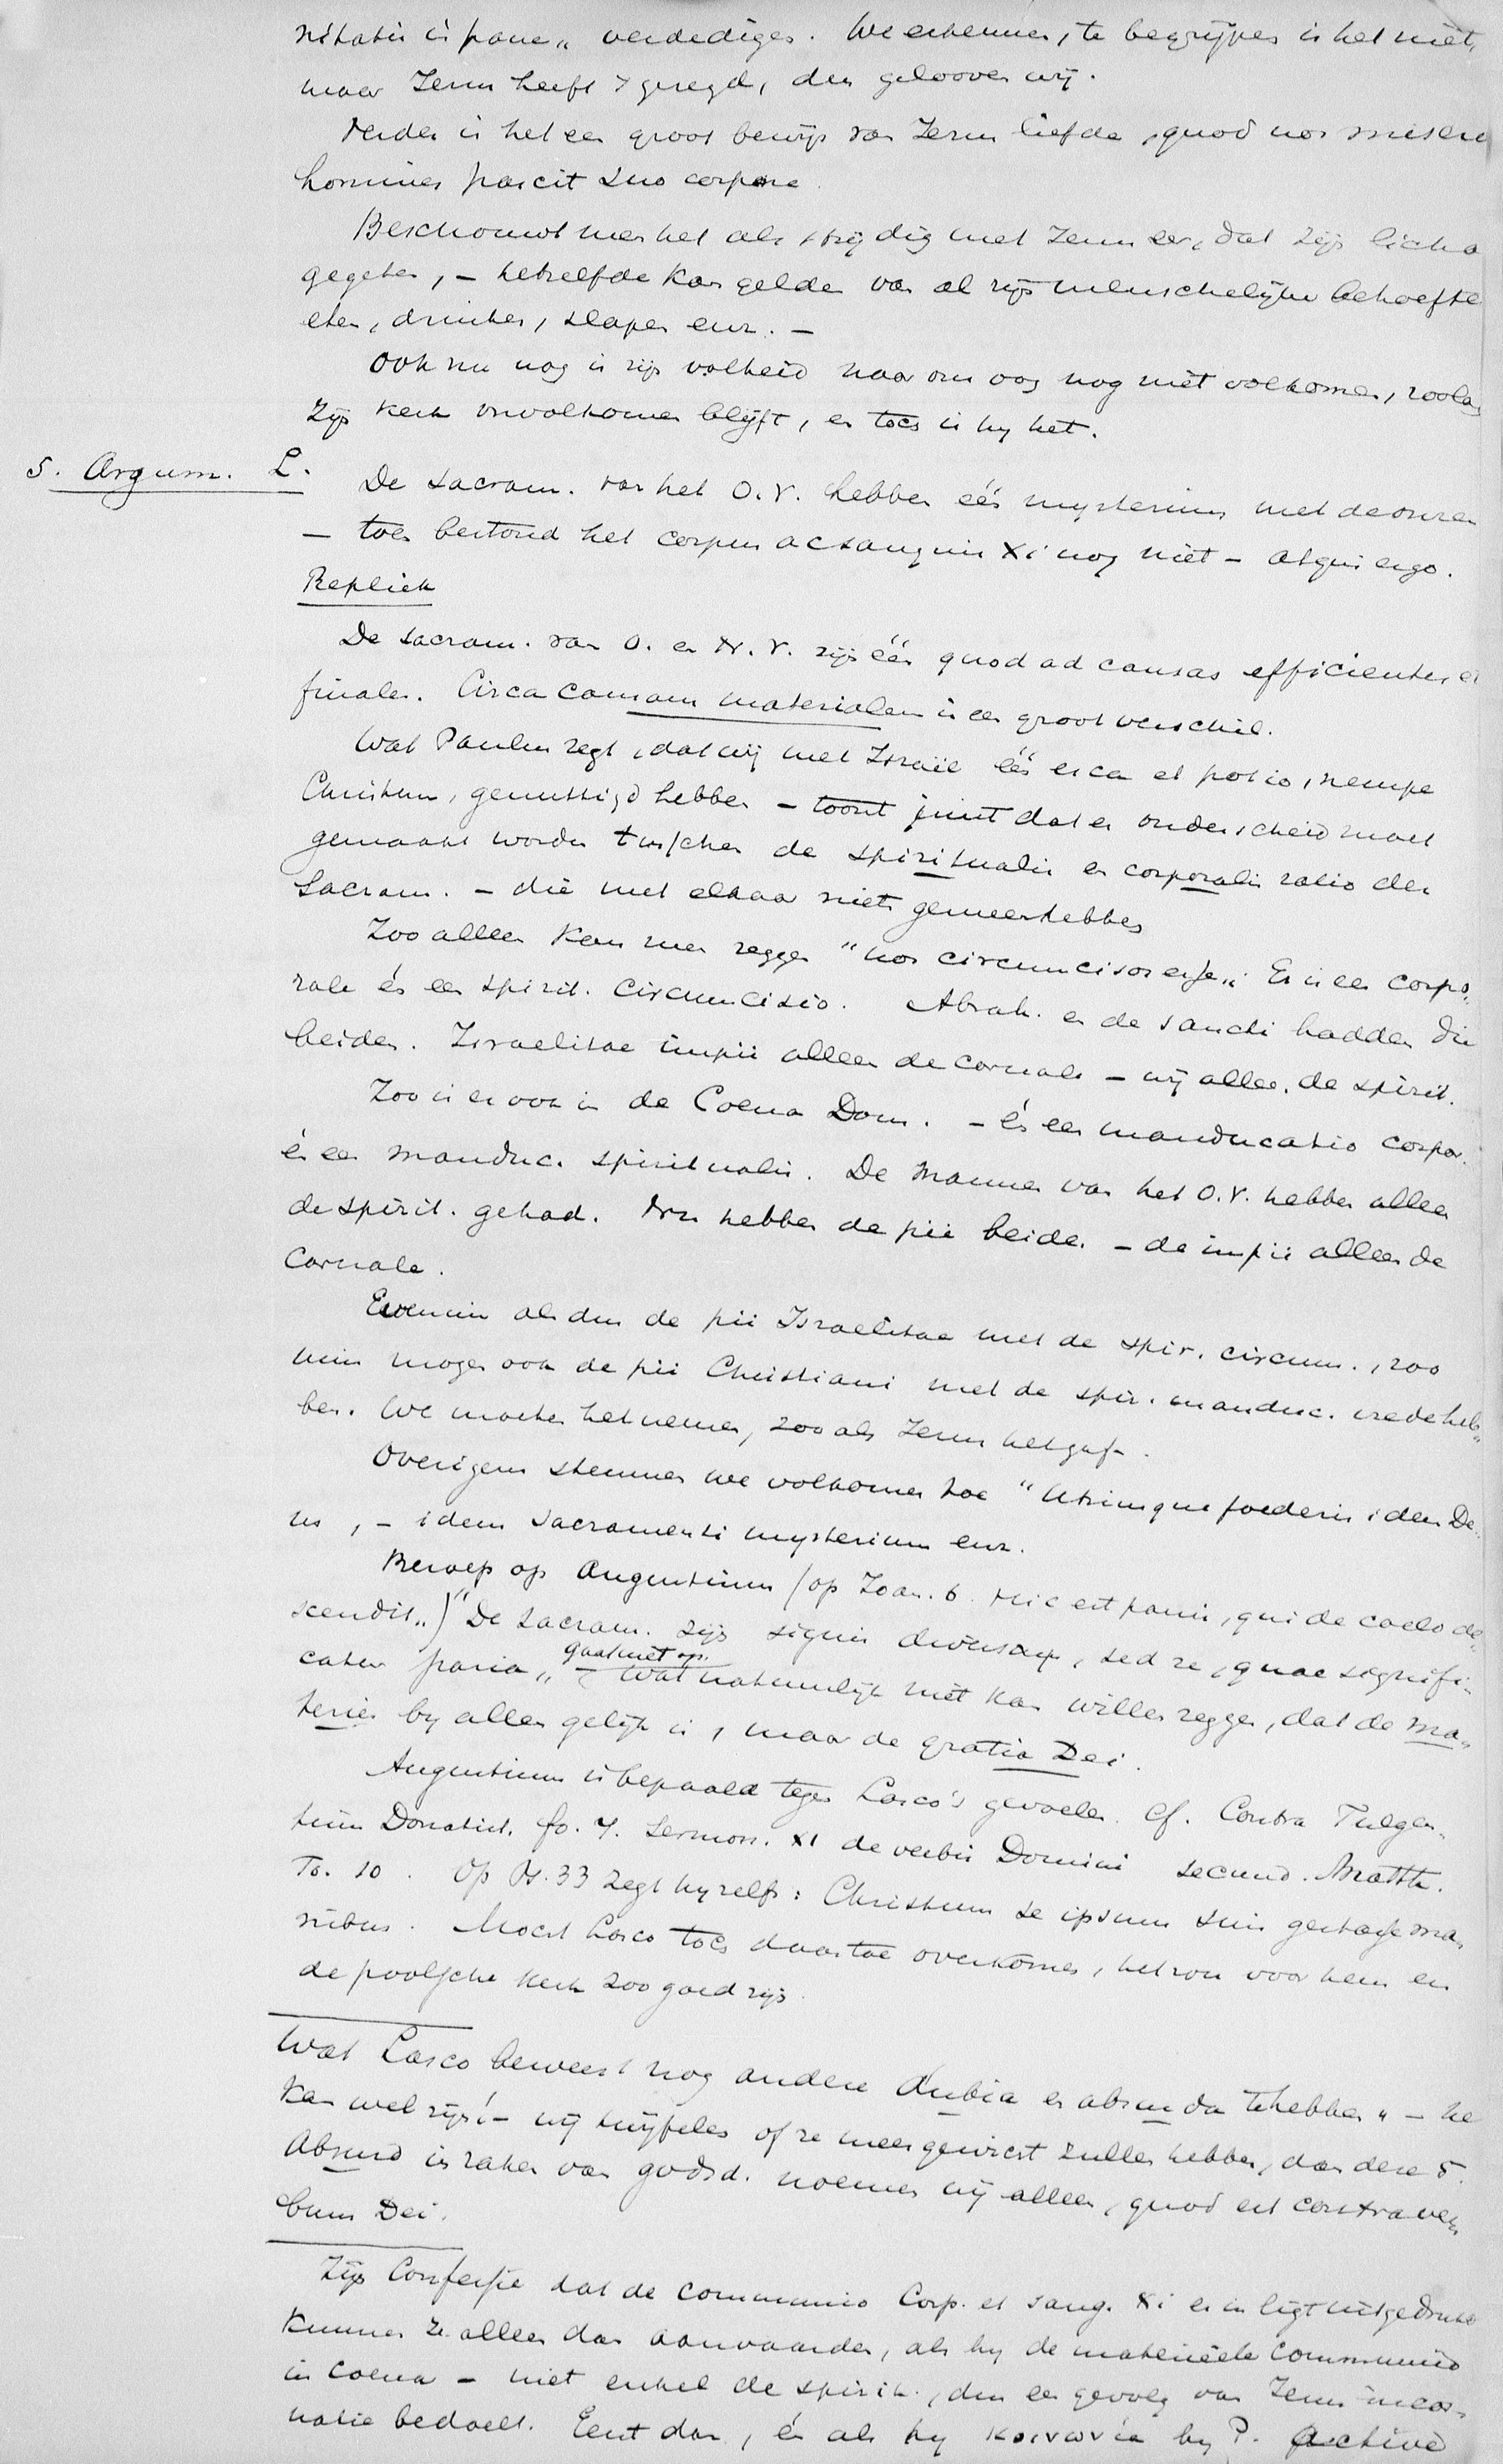 nitatis in pane„ verdediger. We erkennen, te begrijpen is het niet,
maar Jezus heeft 't gezegd, dus gelooven wij.
Verder is het een groot bewijs van Jezus liefde, quod nos miseros
homines pascit suo corpore.
Beschouwt men het als strijdig met Jezus eer, dat zijn licha
gegeten, – hetzelfde kan gelden van al zijn menschelijke behoefte
eten, drinken, slapen enz. –
Ook nu nog is zijn volheid naar ons oog nog niet volkomen, zoolang
Zijn Kerk onvolkomen blijft, en toch is hy het.
5. Argum. L.
De sacram. van het O.V. hebben één mysterium met de onzen
– toen bestond het corpus ac sanguis Xi nog niet – atqui ergo.
Repliek
De sacram. van O. en N.V. zijn één quod ad causas efficientes et
finales. Circa causam materialem is een groot verschil.
Wat Paulus zegt, dat wij met Israël één esca et potio, nempe
Christum, genuttigd hebben – toont juist dat er onderscheid moet
gemaakt worden tusschen de spiritualis en corporalis ratio der
Sacram. – die met elkaar niets gemeen hebben
Zoo alleen kan men zeggen "nos circumcisos esse„. Er is een corpo-
rale én een spirit. circumcisio. Abrah. en de sancti hadden die
beiden. Israelitae impii alleen de carnale – wij alleen de spirit.
Zoo is er ook in de Coena Dom. – én een manducatio corpor.
én een manduc. spiritualis. De mannen van het O.V. hebben alleen
de spirit. gehad. Nu hebben de pii beide. – de impii alleen de
carnale.
Evenmin als dus de pii Israelitae met de spir. circum., zoo
min mogen ook de pii Christiani met de spir. manduc. vrede heb-
ben. We moeten het nemen, zooals Jezus het gaf.
Overigens stemmen we volkomen toe "Utriusque foederis idem De-
us, – idem sacramenti mysterium enz.
Beroep op Augustinus (op Joan. 6. Hic est panis, qui de caelo de-
scendit„) "De sacram. zijn signis diversa, sed re, quae signifi-
catur paria„ – gaat niet op. Wat natuurlijk niet kan willen zeggen, dat de ma-
teries by allen gelijk is, maar de gratia Dei.
Augustinus is bepaald tegen Lasco's gevoelen. Cf. Contra Fulgen-
tium Donatist. fo. 7. Sermon. XI de verbis Domini secund. Matth.
To. 10. Op Ps. 33 zegt hy zelfs: Christum se ipsum suis gestasse ma-
nibus. Mocht Lasco toch daartoe overkomen, het zou voor hem en
de poolsche Kerk zoo goed zijn.
Wat Lasco beweert nog andere dubia en absurda te hebben „ – he
kan wel zijn! – wij twijfelen of ze meer gewicht zullen hebben, dan deze 5.
Absurd in zaken van godsd. noemen wij alleen, quod est contra ver-
bum Dei.
Zijn Confessie dat de communio Corp. et sang. Xi er in ligt uitgedrukt
kunnen ze alleen dan aanvaarden, als hy de materiëele communio
in coena – niet enkel de spirit., dus een gevolg van Jezus incar-
natie bedoelt. Eerst dan, én als hy κοινωνία by P. active